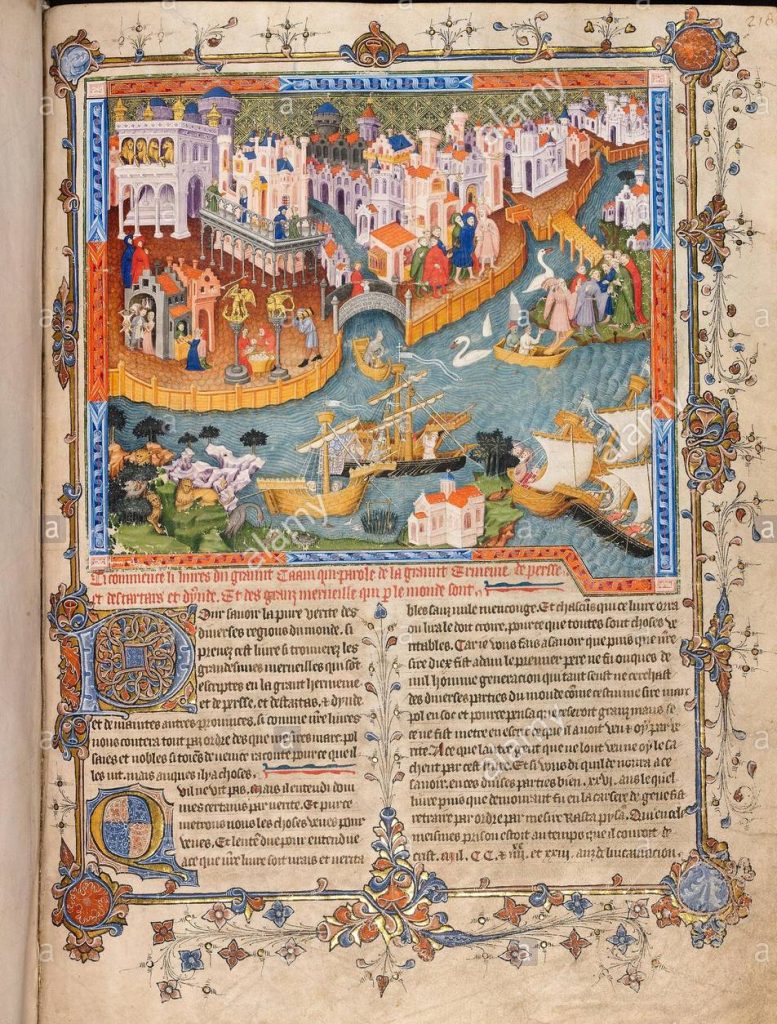 218
Ci commence li liures du graunt Caam qui parole de la graunt Ermenie de persse
et des tartars et dynde. Et des granz merueille qui p le monde sont
Pour sauoir la pure verite des
diuerses regions du monde. si
prenez cest liure si trouuerez les
grandesimes merueilles qui sont
escriptes en la grant hermenie
et de persse, et des tartas, & dynde
et de maintes autres prouinces, si comme nre liures
nous contera tout par ordre des que
et nobles
les vit. mais auques il y a choses.
Quil ne vit pas. mais il entendi dou
mes certains par verite. Et pur ce
metrons nous les choses veues pour
veues. Et lentendue pour entendue
a ce que nre liure soit urais et verita
bles sanz nule mencouge. Et chascuns qui ce liure orra
ou lira le doit croire, pour ce que toutes sont choses ve
ritables. Car ie vous fais a sauoir que puis que nre
sire diex fist adam le premier pere ne fu onques de
nul homme generacion qui tant seust ne cerchast
des diuerses parties du monde
pol
se ne fust metre en escript ce quil a
rite. A ce que lautre gent que ne lont veue oy le sa
chent par cest liure. Et si vous di quil demora a ce
sauoir. en ces diuises parties bien .xxvi. ans le quel
liure puis que demourant fu en la carsere de gene fist
retraire par ordre par mesire Rasta pysa. Qui en cele
meismes prison estoit au temps que il couroit de
crist .mil. CC. et xviii. anz de lincarnacion
alamy
alamy
alamy
alamy